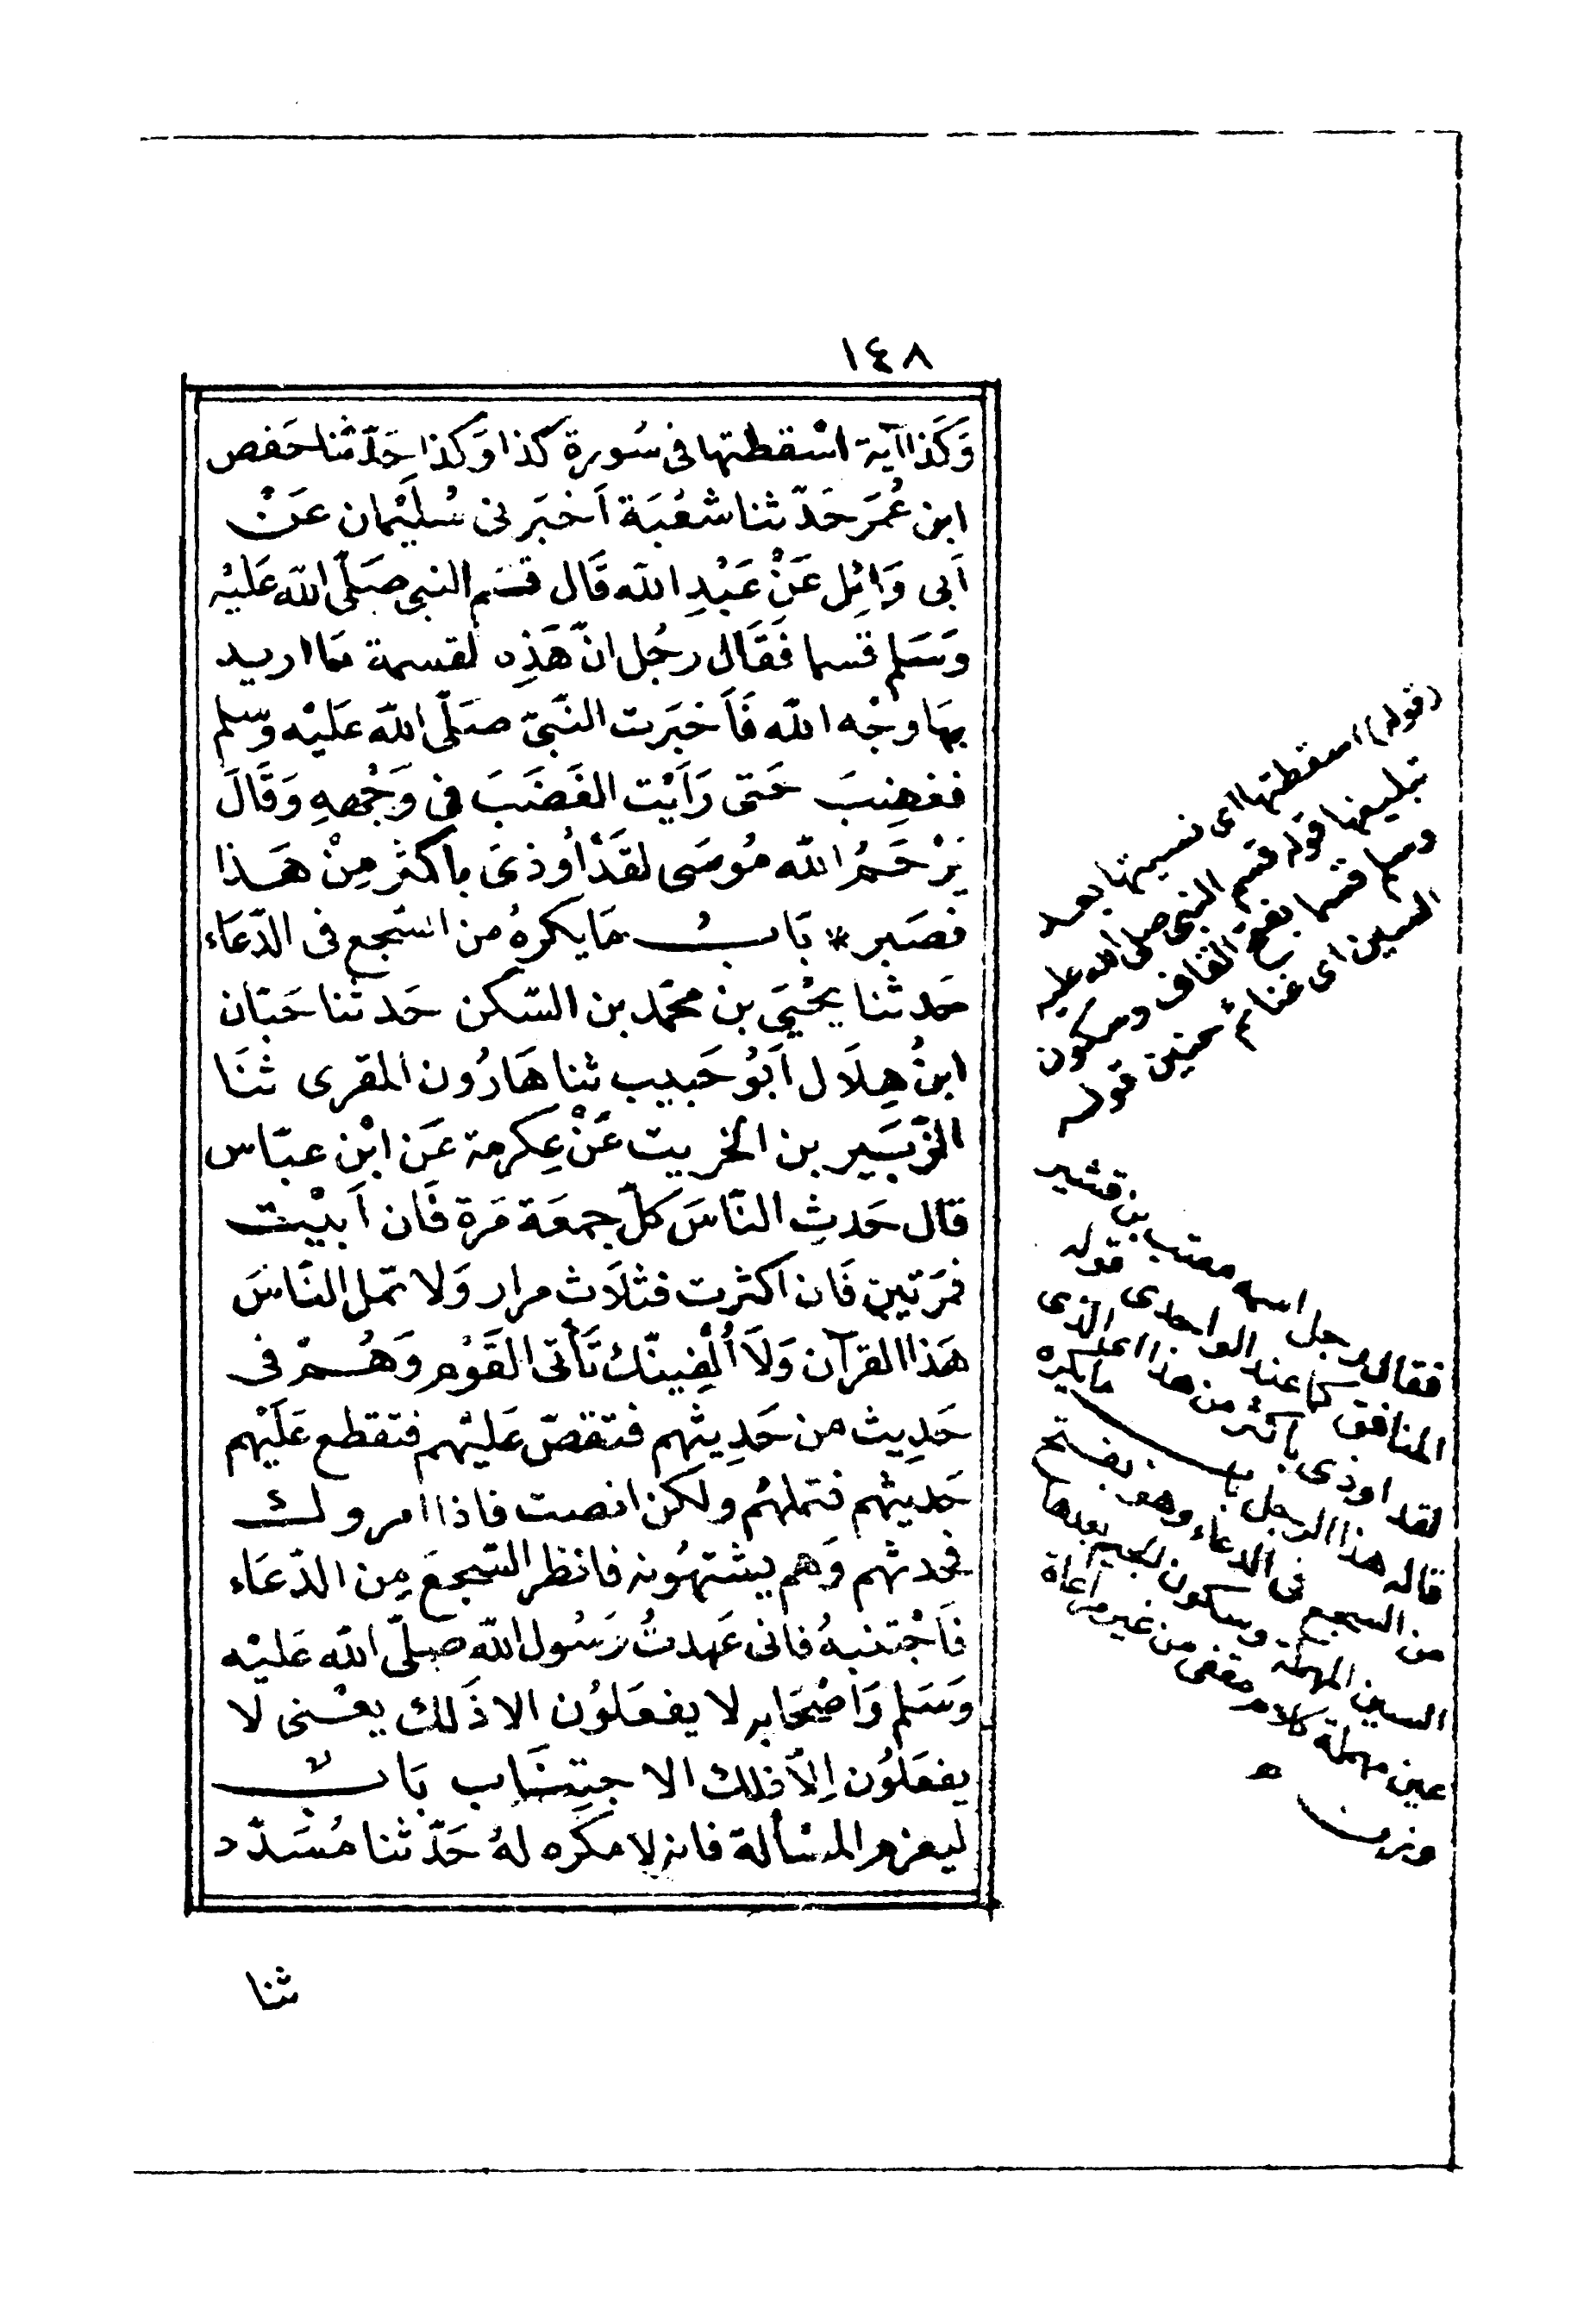 ١٤٨
وَكَذا آية اسْقطتها فى سُورة كذا وَكذا حَدّثنا حَفص
ابن عُمَر حَدّثنا شعْبَة أخبَرنى سُليْمان عَنْ
أبى وَائِل عَنْ عَبْدِ الله قَال قسَم النبى صَلّى الله عَليْه
وَسَلم قسما فَقَال رجُل انّ هَذِه لقسمة مَا اريد
بهَا وجْه الله فَأخبَرت النَّبىّ صَلّى الله عَليْه وسّلم
فغضِبَ حَتى رَأيْت الغَضَبَ فى وَجْههِ وَقَالَ
يَرْحَمُ الله مُوسَى لقَدْ أُوذىَ باكثر مِنْ هَذا
فصَبر * بَابُ مَا يكرهُ من السّجع فى الدّعَاء
حَدثنا يحْيَى بن محمّد بن السّكن حَدثنا حَبّان
ابنُ هِلَال أبُو حَبيب ثنا هَارُون المقرى ثنَا
الزّبَير بن الخريت عَنْ عِكرمة عَن ابْن عبّاس
قال حَدثِ النّاسَ كلّ جمعَة مَرة فَان أبيْت
فمَرتين فَان اكثرت فثلَاث مرار وَلا تمل النّاسَ
هَذا القرآن وَلَا أُلْفِينّك تَأتى القَوْم وَهُمْ فى
حَدِيث من حَدِيثهم فتقصّ عَليْهم فتقطع عَلَيْهم
حَديثهم فتملهُم ولكن انصت فاذا امروك
فحدثهم وَهم يشتهُونه فانظر السّجعَ مِن الدّعَاء
فَاجْتنبهُ فانى عَهدتُ رَسُول الله صلّى الله عَليْه
وَسَلم وَاصْحَابه لا يفعَلوُن الا ذَلك يعْنى لا
يفعَلوُن إلّا ذلك الاجتِنَاب بَابُ
ليعزم المسْألة فانه لا مكره لهُ حَدّثنا مُسَدّد
ثنا
(قوله) اسقطتها اى نسيتها بعد
تبليغها قوله قسم النبى صلى الله عليه
وسلم قسما بفتح القاف وسكون
السين اى غنائم حنين قوله
فقال رجل اسمه معتب بن قشير
المنافق كما عند الواحدى قوله
لقد اوذى باكثر من هذا الذى
قاله هذا الرجل باب ما يكره
من السجع فى الدعاء وهو بفتح
السين المهملة وسكون الجيم بعدها
عين مهملة كلام مقفى من غير مراعاة
وزن اه